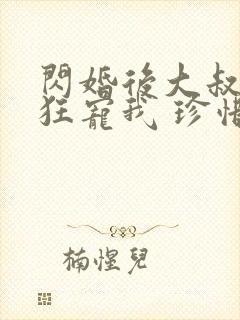 閃婚後大叔
狂寵我 珍惜
楠惺兒